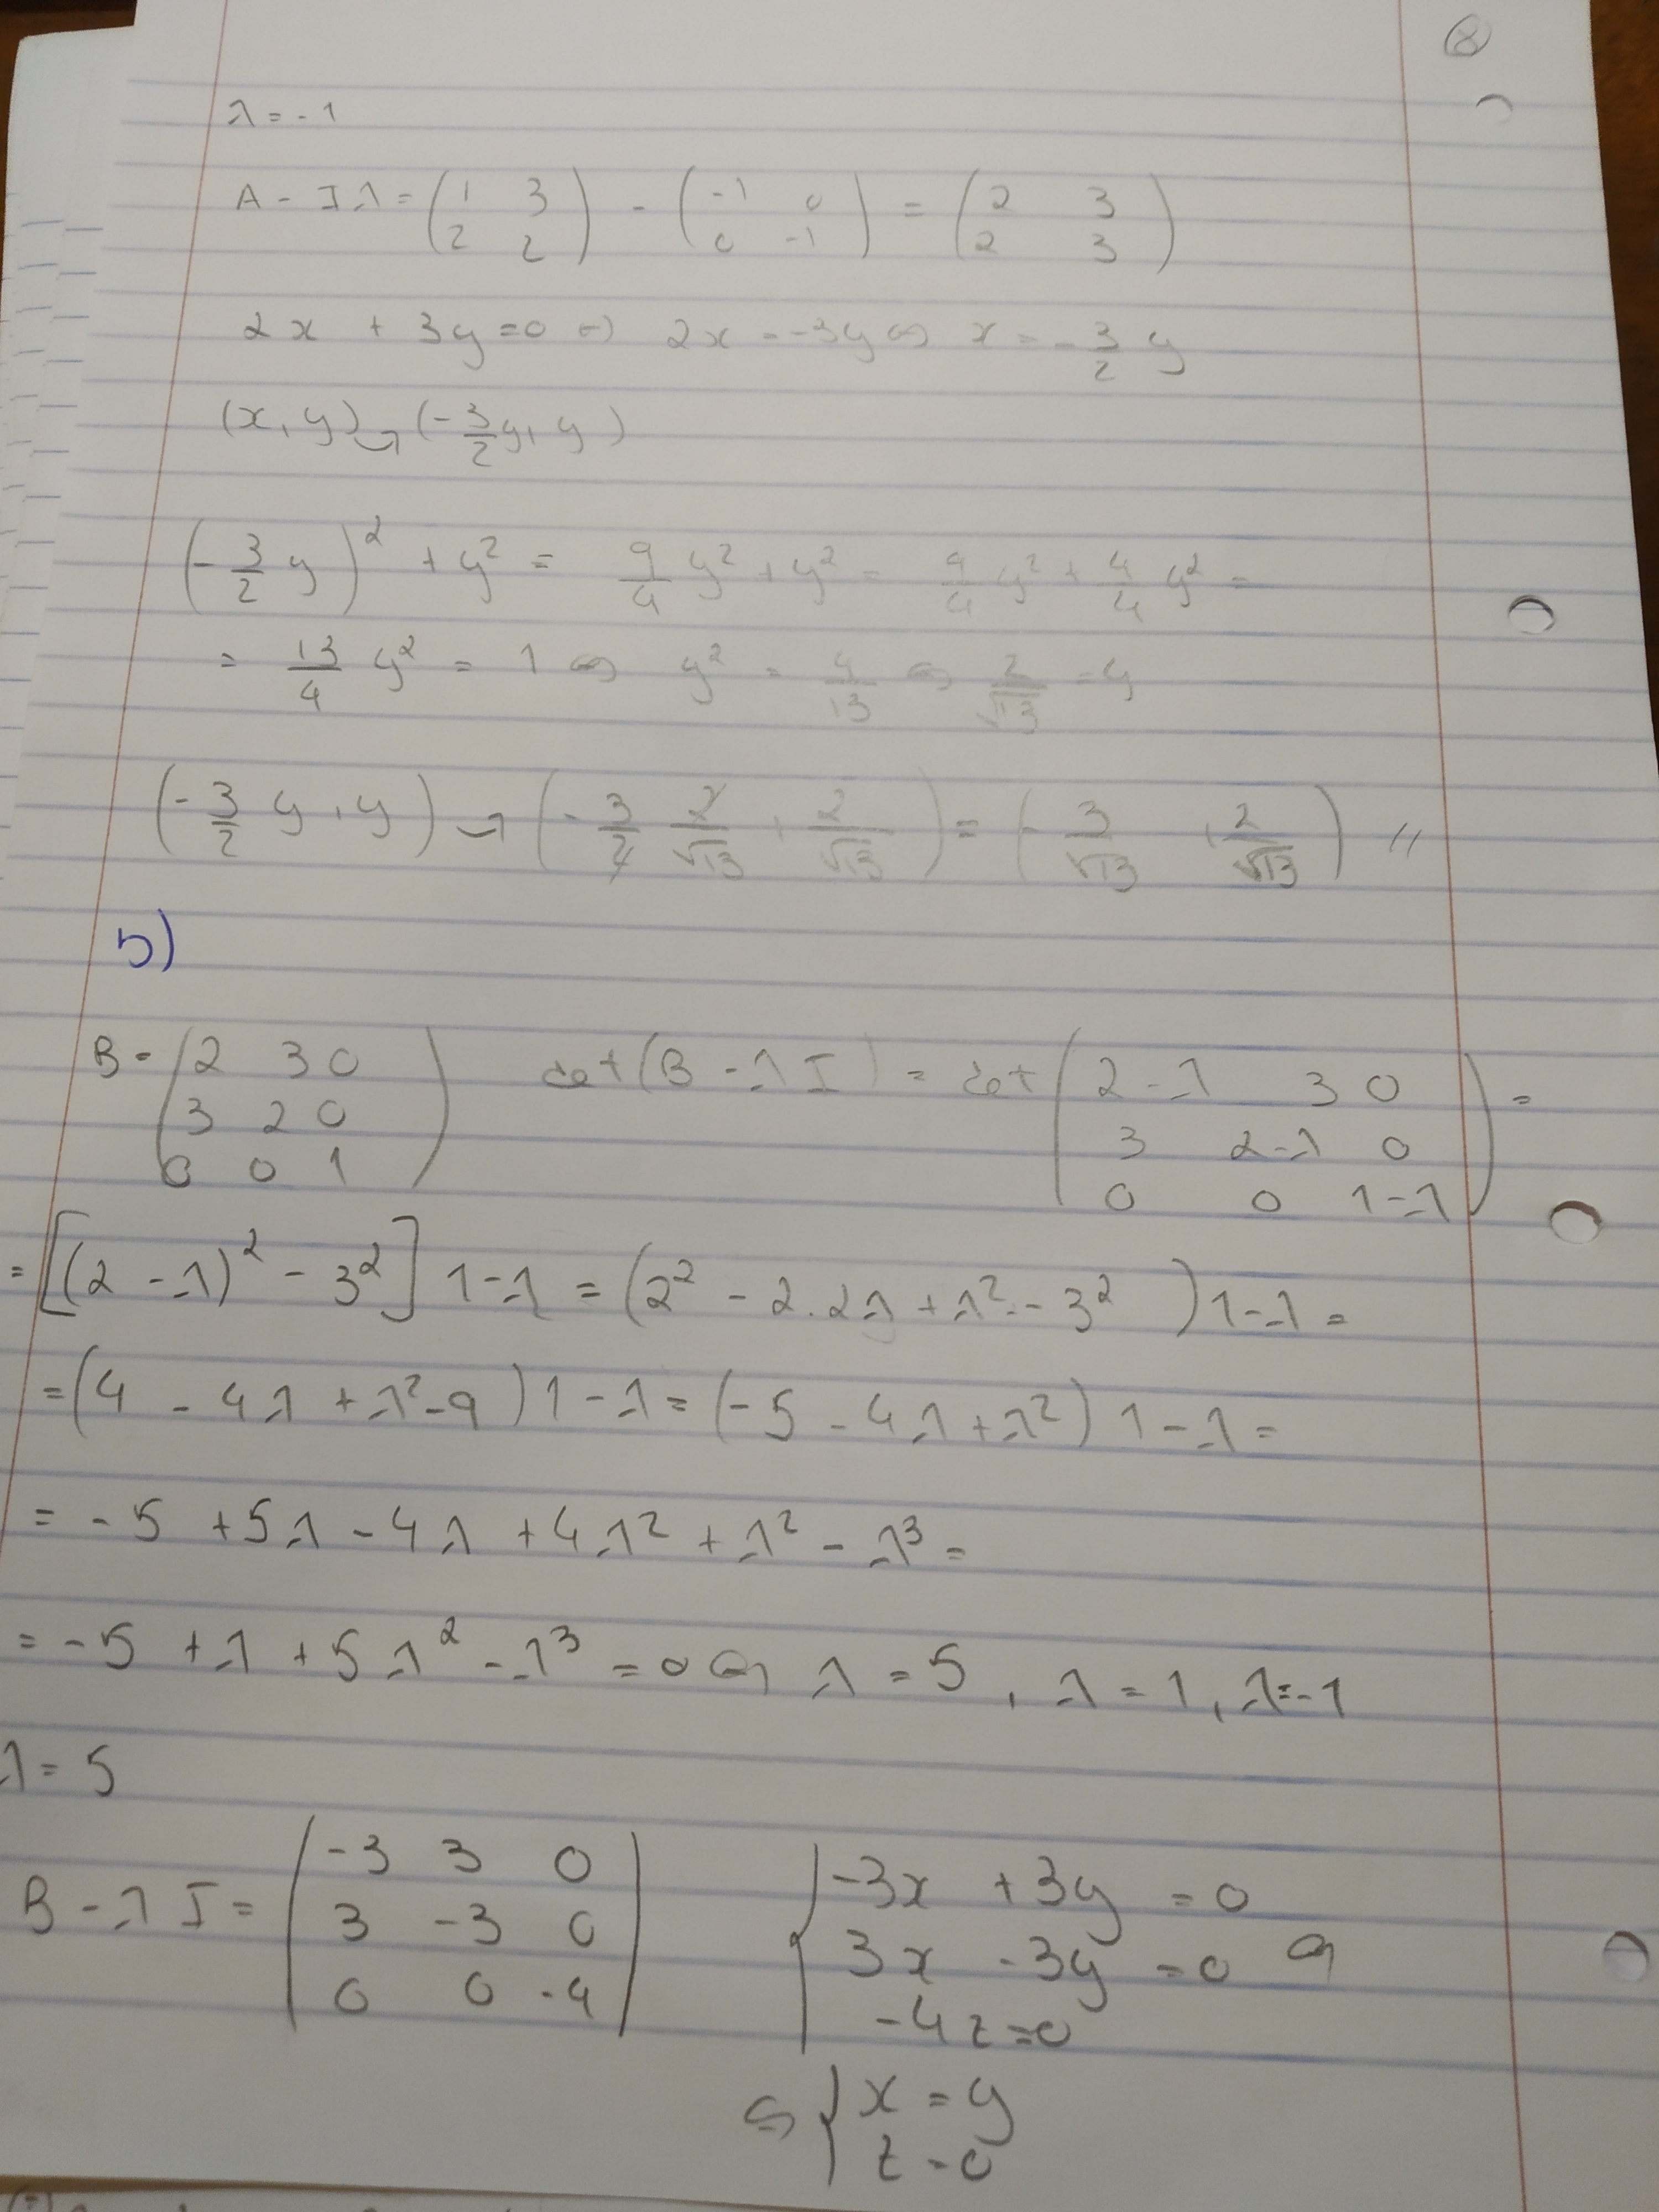 ②
λ = -1
A - Iλ = (1 3 2 2) - (-1 0 0 -1) = (2 3 2 3)
2x + 3y = 0 ⇔ 2x = -3y ⇔ x = -3/2 y
(x, y) → (-3/2 y, y)
(-3/2 y)² + y² = 9/4 y² + y² = 9/4 y² + 4/4 y² =
= 13/4 y² = 1 ⇔ y² = 4/13 ⇔ 2/√13 = y
(-3/2 y, y) → (-3/2 2/√13, 2/√13) = (-3/√13, 2/√13) //
5)
B = (2 3 0 3 2 0 0 0 1) det(B - λI) = det(2-λ 3 0 3 2-λ 0 0 0 1-λ) =
= [(2 - λ)² - 3²] 1-λ = (2² - 2.2λ + λ² - 3²) 1-λ =
= (4 - 4λ + λ² - 9) 1-λ = (-5 - 4λ + λ²) 1-λ =
= -5 + 5λ - 4λ + 4λ² + λ² - λ³ =
= -5 + λ + 5λ² - λ³ = 0 ⇔ λ = 5, λ = 1, λ = -1
λ = 5
B - λI = (-3 3 0 3 -3 0 0 0 -4) { -3x + 3y = 0 3x - 3y = 0 -4z = 0 ⇔
⇔ { x = y z = 0